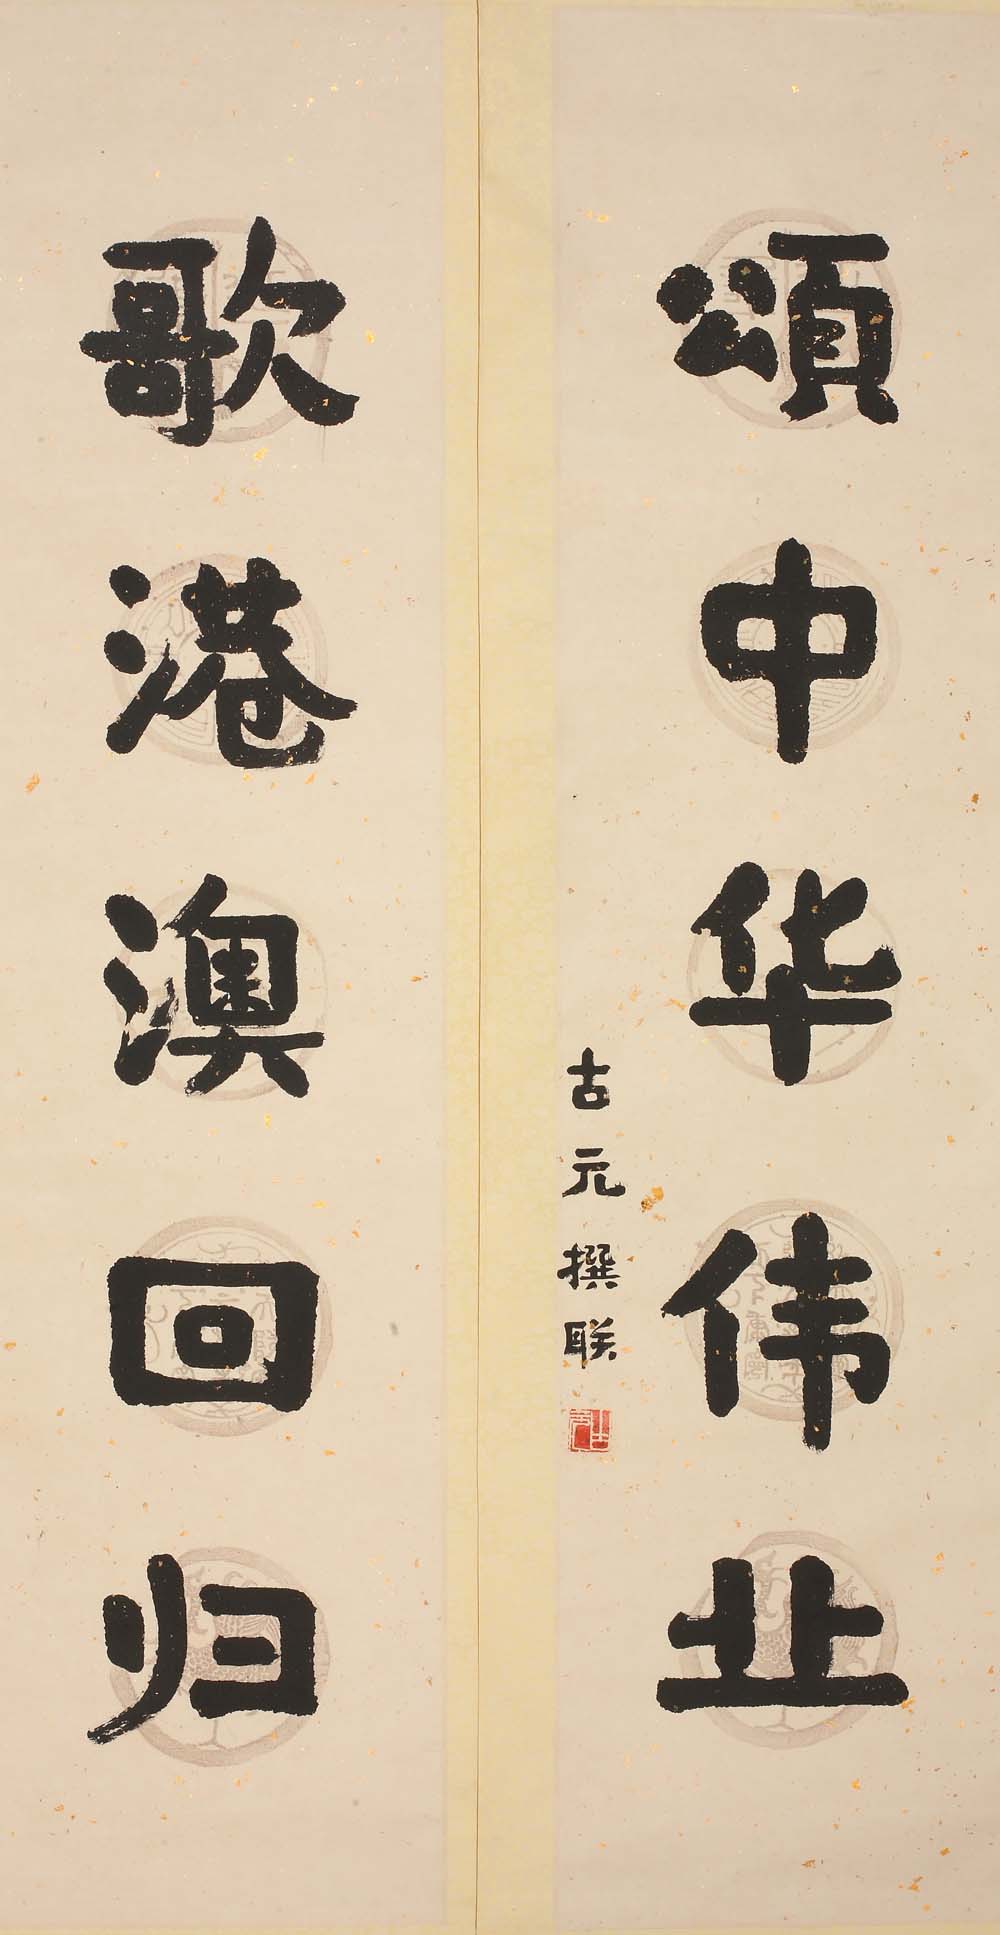 頌中华伟业
古元撰联
歌港澳回归